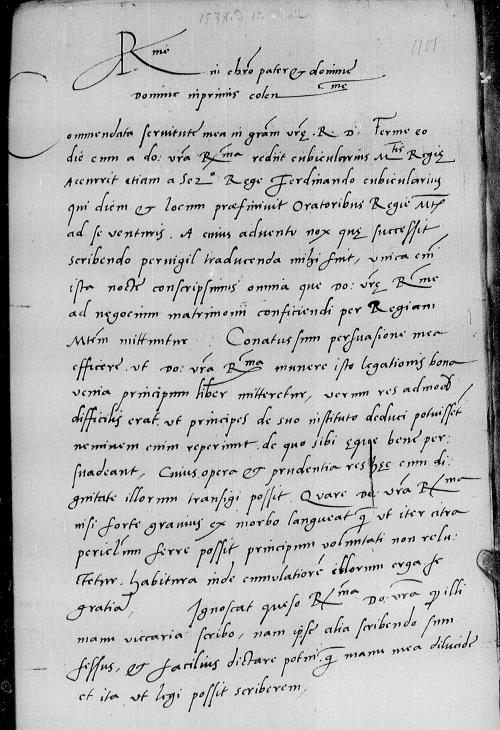 1538. D. 17. Maii
1101
R.me
in chr̃o pater & domine
Domine inprimis colen.me
Commendata servitute mea in gr̃am vr̃ę R. D. Ferme eo
die cum a do: vr̃a R.ma redijt cubicularius M.tis Regię
Accurrit etiam a Ser.o Rege Ferdinando cubicularius
qui diem & locum præfinivit Oratoribus Regię M.tis
ad se venturis. A cuius adventu nox quę successit
scribendo pervigil traducenda mihi fuit, unica em̃
ista nocte conscripsimus omnia que Do: vr̃ę R.me
ad negocium matrimonii conficiendi per Regiam
M.tem mittuntur. Conatus sum persuasione mea
efficere ut Do: vr̃a R.ma munere isto legationis bona
venia principum liber mitteretur, verum res admodũ
difficilis erat ut principes de suo instituto deduci potuissẽt
neminem enim reperiunt de quo sibi ęque bene per:
suadeant, Cuius opera & prudentia res hęc cum di:
gnitate illorum transigi possit. Quare Do: vr̃a R.ma
nisi forte gravius ex morbo langueat q̃ ut iter citra
periclum ferre possit principum voluntati non relu:
ctetur. habitura inde cumulatiorẽ illorum erga se
gratiã. Ignoscat queso R.ma Do: vr̃a q̃ illi
manu viccaria scribo, nam ip̃se alia scribendo sum
fessus, & facilius dictare potui q̃ manu mea dilucide
et ita ut legi possit scriberem,